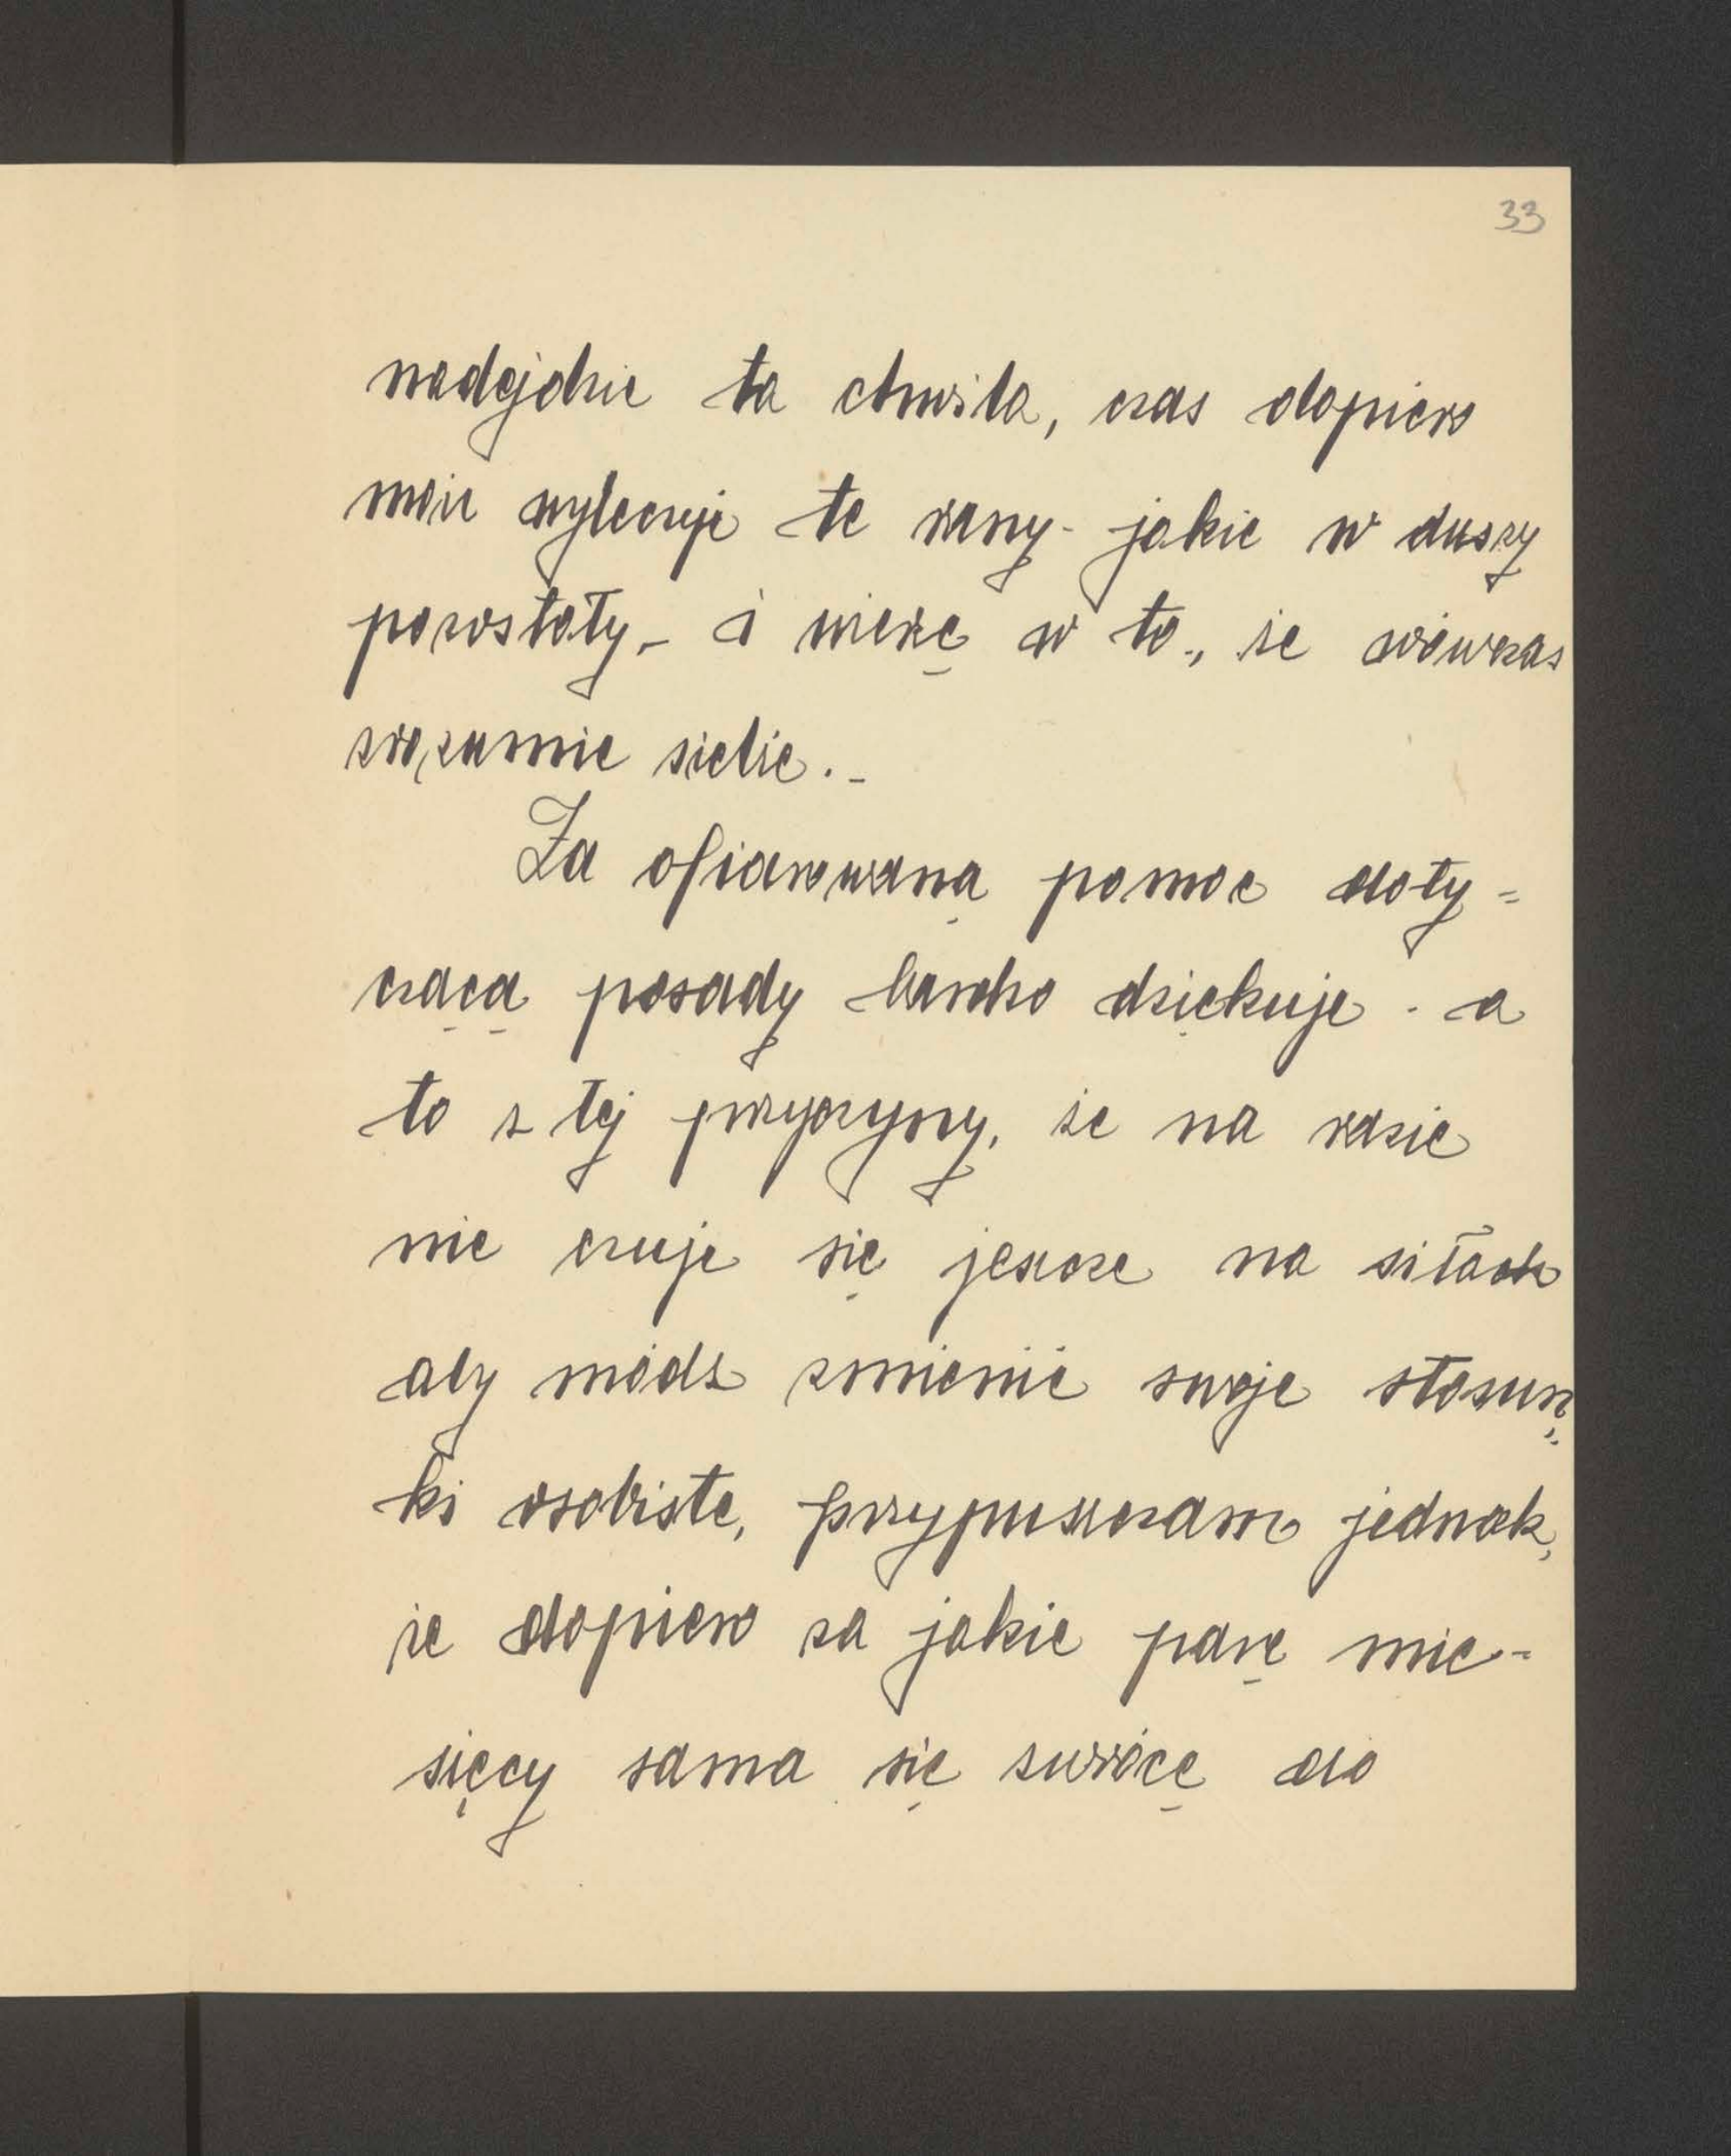 33
nadejdzie ta chwila, czas dopiero
może wyleczyć te rany - jakie w duszy
pozostały, - i wierzę w to, że wówczas
zrozumie siebie. -
Za ofiarowaną pomoc doty=
czącą posady bardzo dziękuje - a
to z tej przyczyny, że na razie
nie czuje się jeszcze na siłach
aby módz zmienić swoje stosun=
ki osobiste, przypuszczam jednak,
że dopiero za jakie parę mie-
sięcy sama się zwrócę do